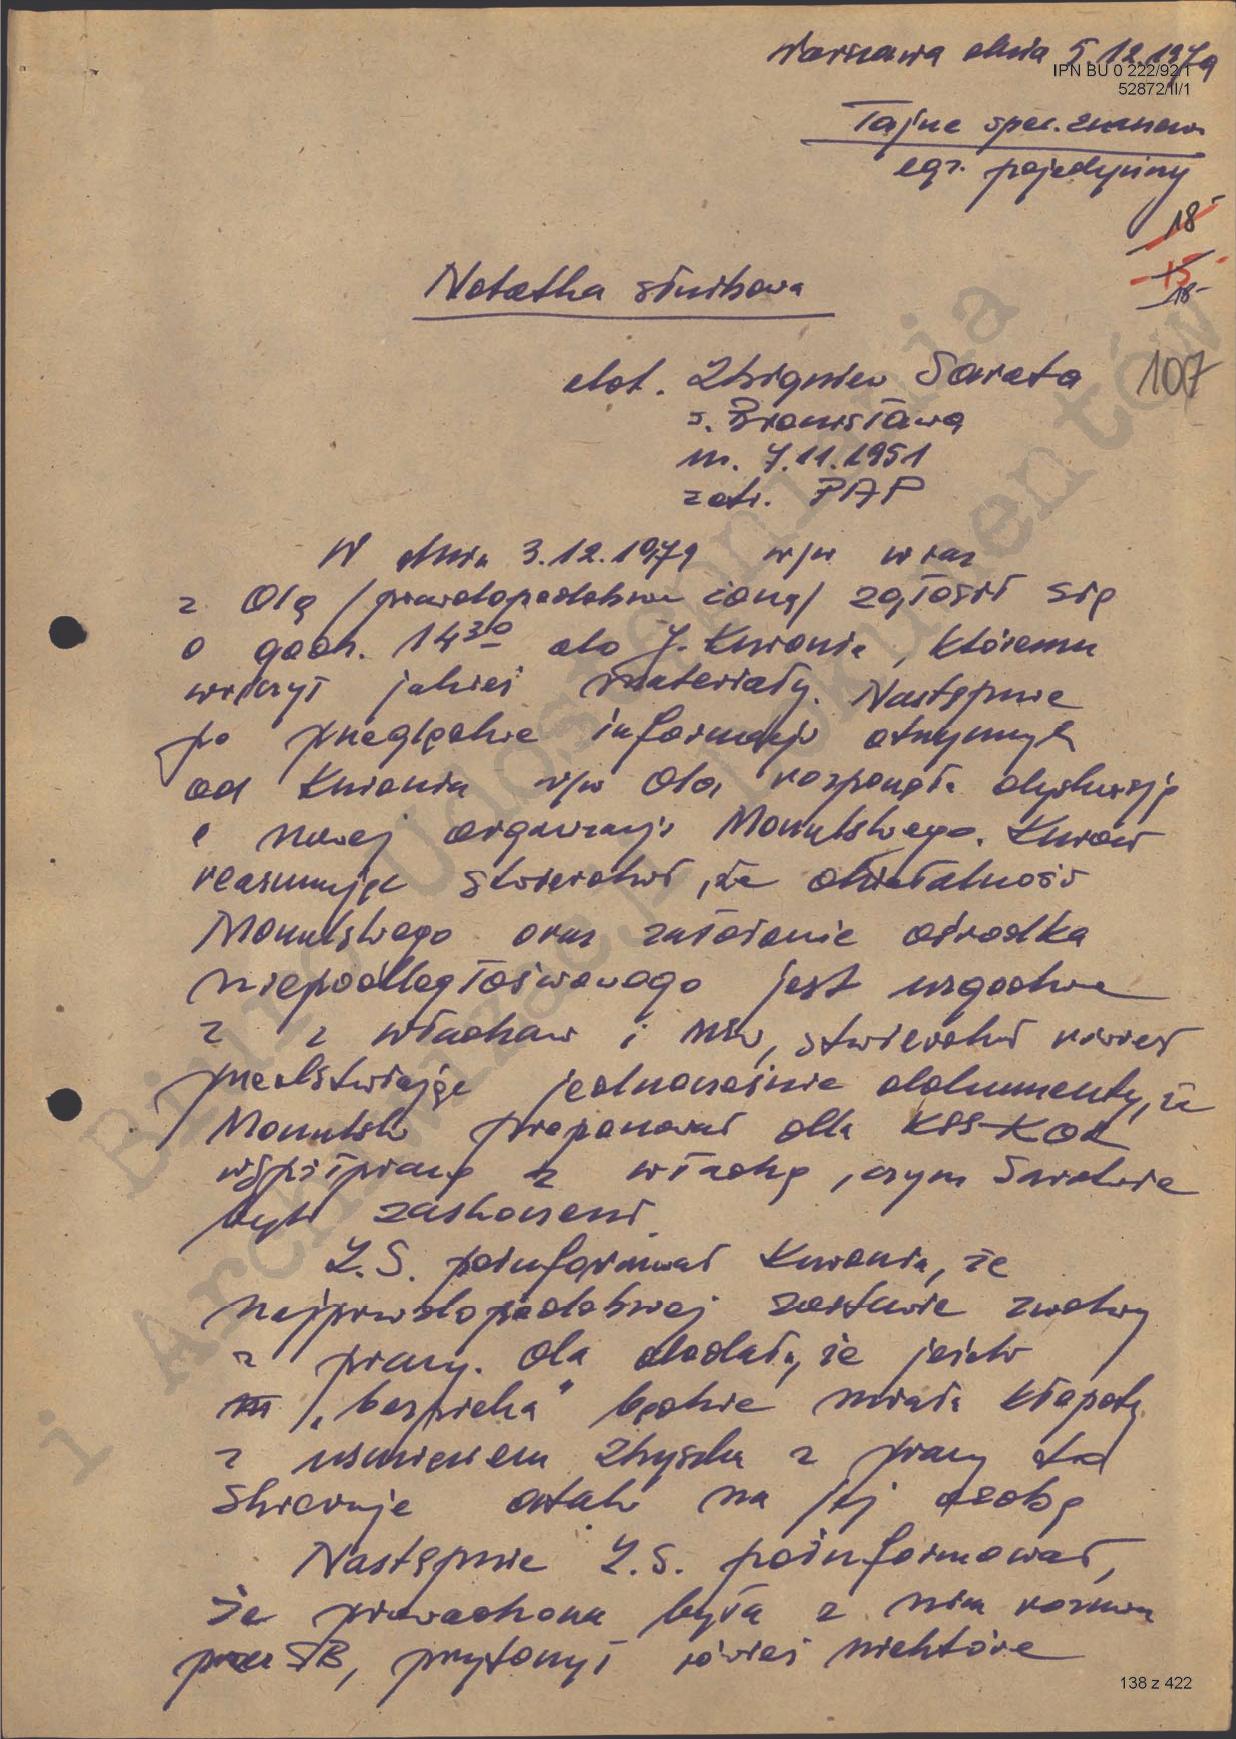 Warszawa dnia 5.12.1979
IPN BU 0 222/92/1
52872/II/1
Tajne spec. znacz.
egz. pojedynczy
18
15
18
Notatka służbowa
107
dot. Zbigniew Sareta
s. Bronisława
ur. 7.11.1951
zatr. PAP
W dniu 3.12.1979 w/w wraz
z Olą /prawdopodobnie żoną/ zgłosił się
o godz. 14 30 do J. Kuronia, któremu
wręczył jakieś materiały. Następnie
po przeglądnie informacji otrzymych
od Kuronia w/w Ola rozpoczęła dyskusję
o nowej organizacji Moczulskiego. Kuroń
reasumując stwierdził, że działalność
Moczulskiego oraz założenie ośrodka
niepodległościowego jest uzgodnione
z z władzami i MSW, stwierdził również
przedstwiając jednocześnie dokumenty, że
Moczulski proponował dla KSS-KOR
współpracę z władzą, czym Saretowie
byli zaskoczeni.
Z.S. poinformował Kuronia, że
najprawdopodobniej zostanie zwolniony
z pracy. Ola dodała, że jeżeli
"bezpieka" będzie miała kłopoty
z usunięciem Zbyszka z pracy to
skieruje ataki na jej osobę
Następnie Z.S. poinformował,
że prowadzona była z nim rozmowa
przez SB, przytoczył również niektóre
138 z 422
Biuro Udostępniania
i Archiwizacji Dokumentów